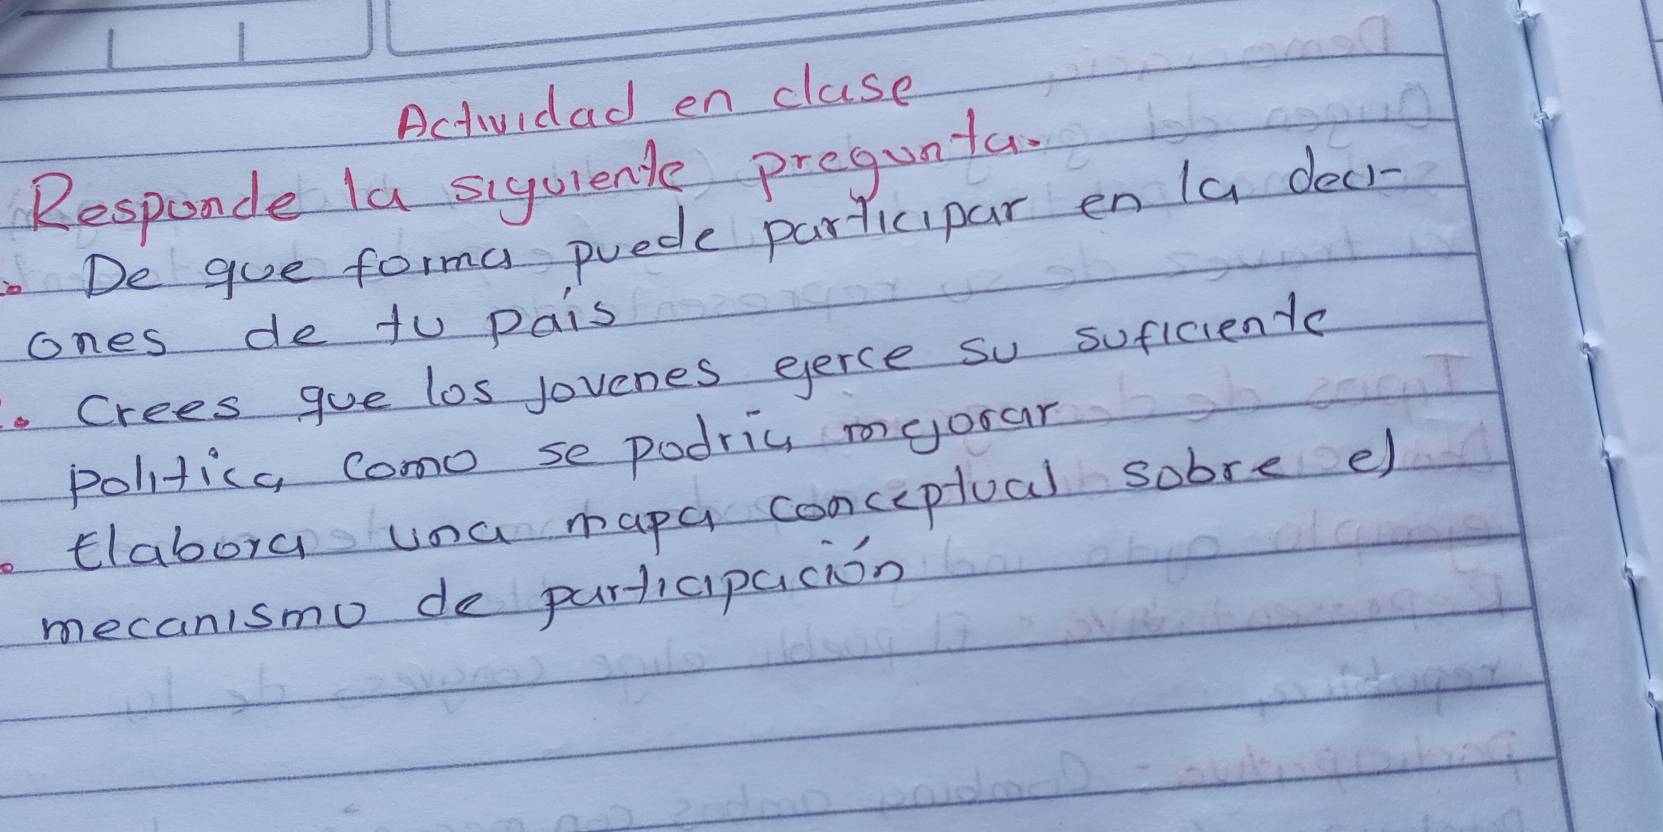 Actividad en clase
Responde la siguiente pregunta.
De que forma puede participar en la deci-
ones de tu país
Crees que los jovenes ejerce su suficiente
politica como se podria mejorar
Elabora una mapa conceptual sobre el
mecanismo de participación